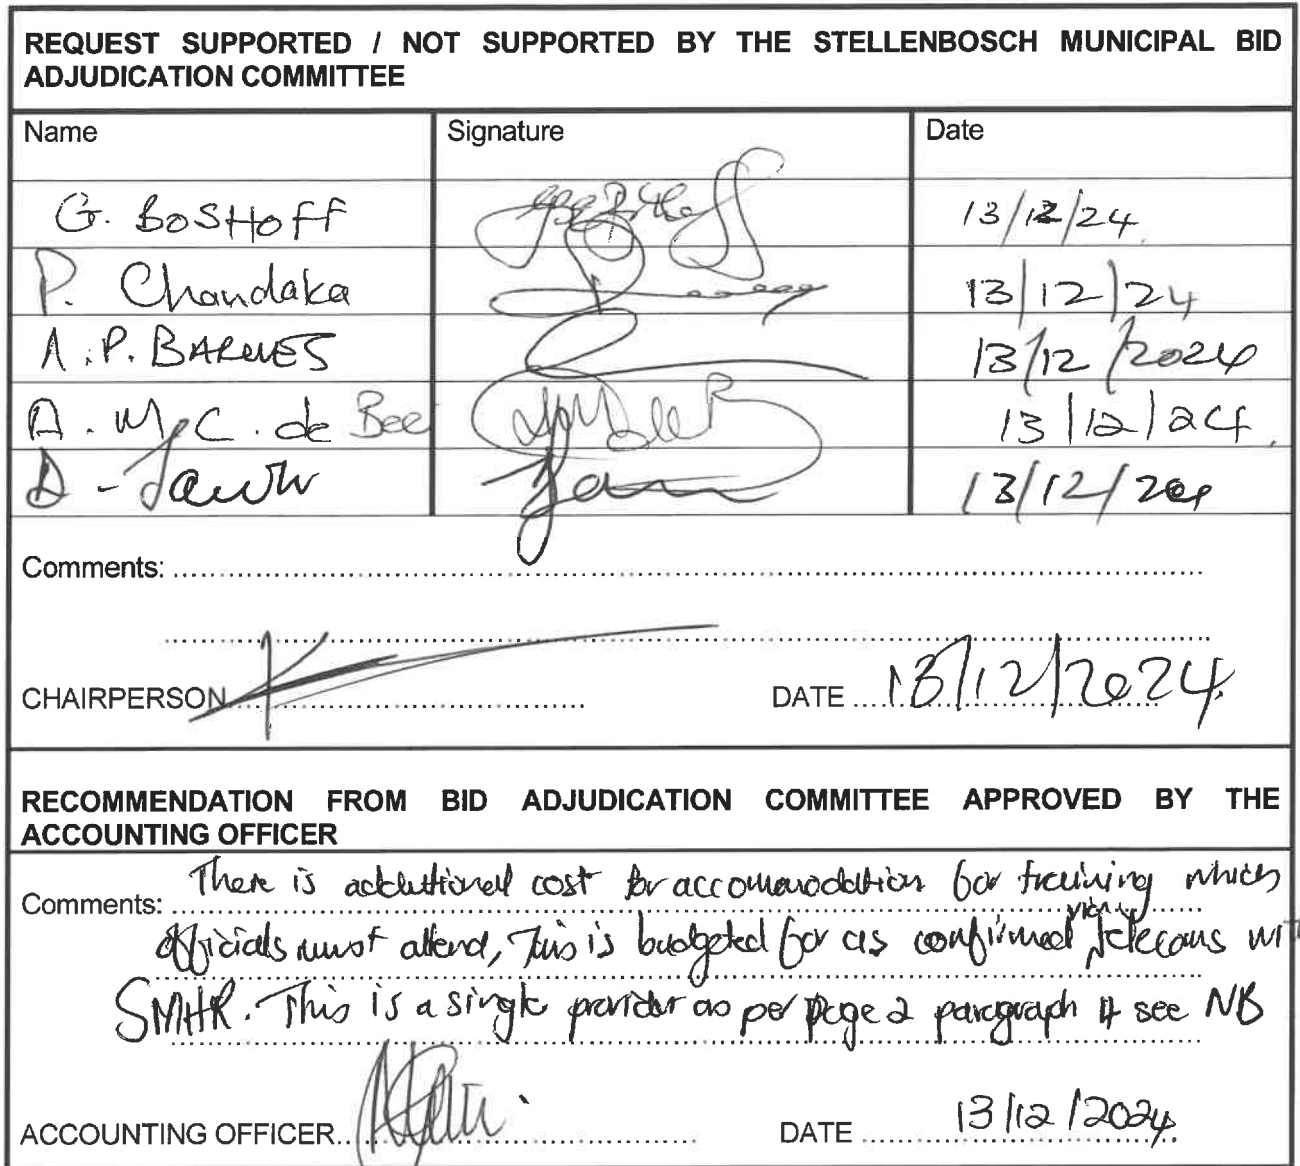 REQUEST SUPPORTED / NOT SUPPORTED BY THE STELLENBOSCH MUNICIPAL BID
ADJUDICATION COMMITTEE
Name Signature Date
G. BOSHOFF 13/12/24
P. Chandaka 13/12/24
A.P. BARNES 13/12/2024
A.M.C. de Bee 13/12/24
D - 13/12/
Comments:
CHAIRPERSON DATE 13/12/2024
RECOMMENDATION FROM BID ADJUDICATION COMMITTEE APPROVED BY THE
ACCOUNTING OFFICER
There is additional cost for accomarodation for training which
Comments:
officials must attend, This is budgeted for as confirmed telecans wi
SMHR. This is a single provider as per page 2 paragraph 4 see NB
ACCOUNTING OFFICER DATE 13/12/2024